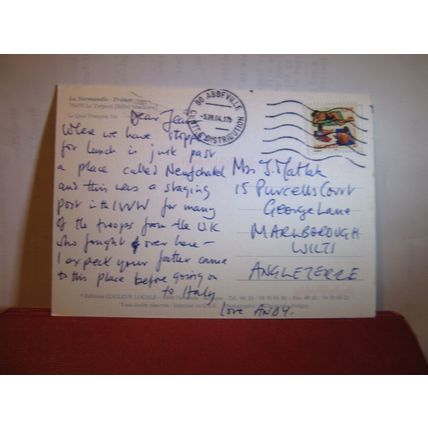 La Normandie - France
76470 Le Tréport
Le Quai François 1er
80 ABBEVILLE
CENTRE DISTRIBUTION
Dear Jean
Where we have stopped
for lunch is just past
a place called Neufchatel
and this was a staging
post in 1WW for many
of the troops from the UK
who fought over here -
I expect your father came
to this place before going on
to Italy
Love ANDY.
Mrs J. Matlak
15 Purcells Court
George Lane
MARLBOROUGH
WILTS
ANGLETERRE
Editions COULEUR LOCALE